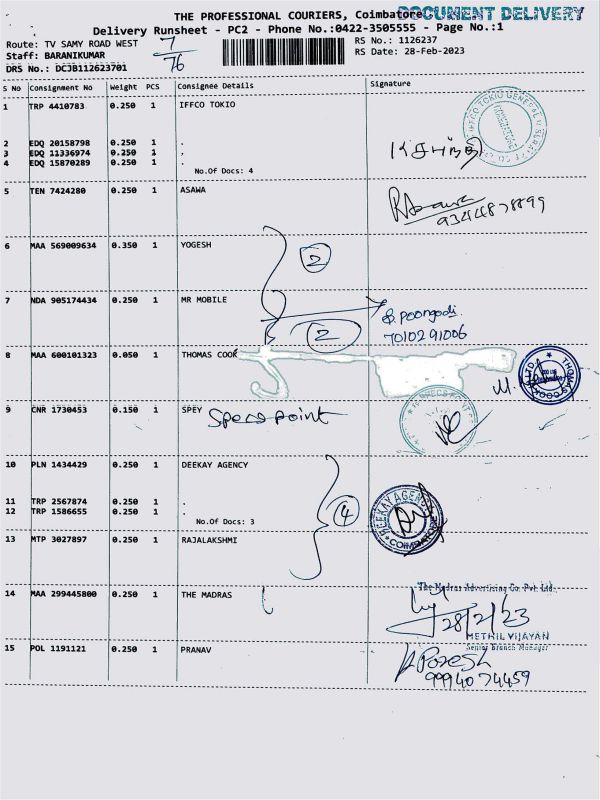 THE PROFESSIONAL COURIERS, Coimbatore
DOCUMENT DELIVERY
Delivery Runsheet - PC2 - Phone No.:0422-3505555 - Page No.:1
Route: TV SAMY ROAD WEST
7/76
RS No.: 1126237
Staff: BARANIKUMAR
RS Date: 28-Feb-2023
DRS No.: DCJB112623701
S No Consignment No Weight PCS Consignee Details Signature
1 TRP 4410783 0.250 1 IFFCO TOKIO
2 EDQ 20158798 0.250 1 .
3 EDQ 11336974 0.250 1 .
4 EDQ 15870289 0.250 1 .
No.Of Docs: 4
5 TEN 7424280 0.250 1 ASAWA
6 MAA 569009634 0.350 1 YOGESH
2
7 NDA 905174434 0.250 1 MR MOBILE
2
S. Poongodi
7010291006
8 MAA 600101323 0.050 1 THOMAS COOK
9 CNR 1730453 0.150 1 SPEY
Specs point
10 PLN 1434429 0.250 1 DEEKAY AGENCY
11 TRP 2567874 0.250 1 .
12 TRP 1586655 0.250 1 .
No.Of Docs: 3
4
DEEKAY AGENCY
COIMBATORE
13 MTP 3027897 0.250 1 RAJALAKSHMI
14 MAA 299445800 0.250 1 THE MADRAS
The Madras Advertising Co. Pvt. Ltd.,
28/2/23
METHIL VIJAYAN
Senior Branch Manager
15 POL 1191121 0.250 1 PRANAV
9994074459